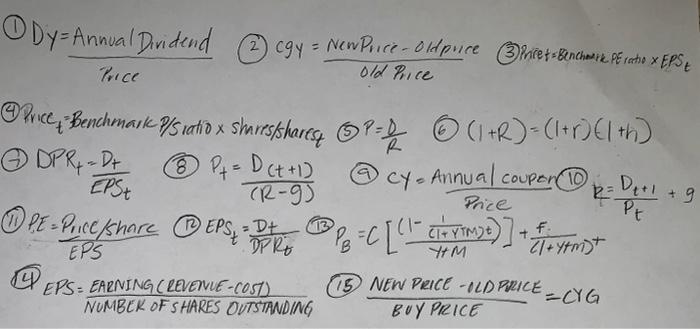 ① Dy = Annual Dividend / Price ② cgy = New Price - Old price / Old Price ③ Price t = Benchmark PE ratio x EPS t
④ Price t = Benchmark P/S ratio x shares/shares ⑤ P = D / R ⑥ (1+R) = (1+r)(1+h)
⑦ DPR t = Dt / EPS t ⑧ Pt = D(t+1) / (R-g) ⑨ CY = Annual coupon / Price ⑩ R = Dt+1 / Pt + g
⑪ PE = Price/share / EPS ⑫ EPS t = Dt / DPR t ⑬ PB = C [(1 - 1 / (1+YTM)t) / YTM] + F / (1+YTM)t
⑭ EPS = EARNING (REVENUE-COST) / NUMBER OF SHARES OUTSTANDING ⑮ NEW PRICE - OLD PRICE / BUY PRICE = CYG